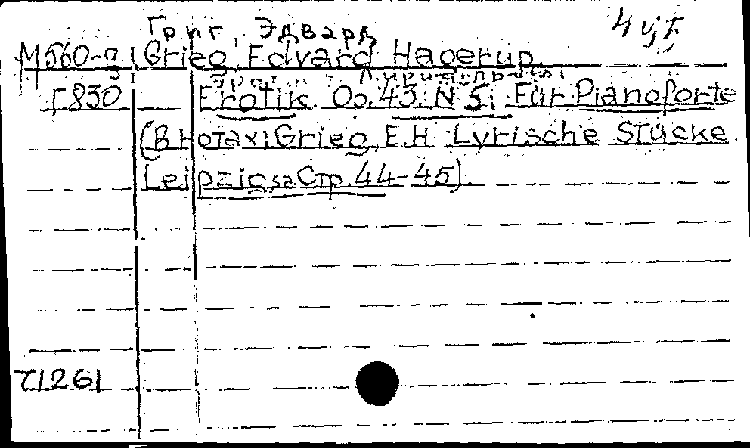 Григ, Эдвард
М560-д Grieg, Edvard Hagerup
Г830 Erotik. Op.43. N 5. Für Pianoforte
(В нотах: Grieg, E.H. Lyrische Stücke.
Leipzig, sa Стр. 44-45).
71261